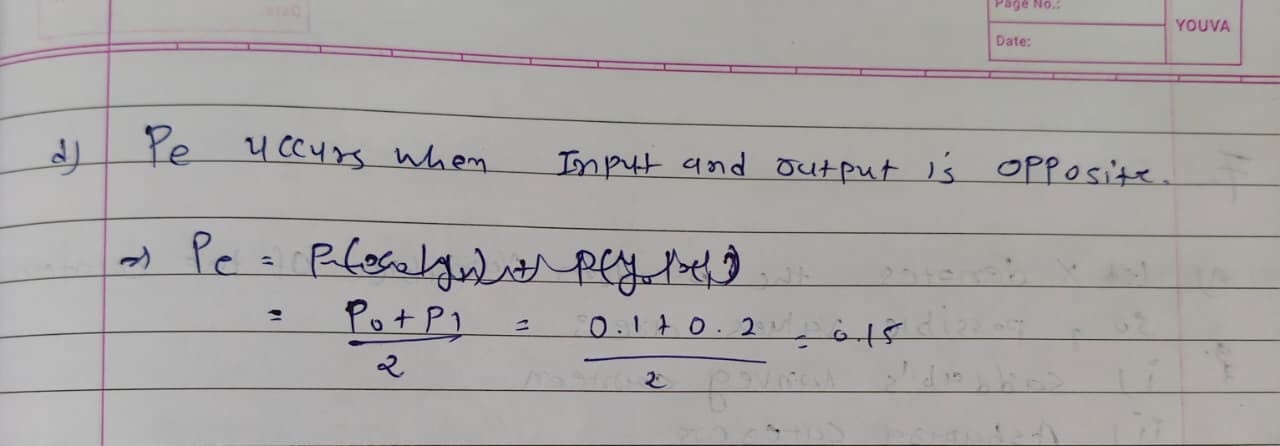 Page No.:
YOUVA
Date:
d) Pe uccurs when Input and output is opposite.
=> Pe =
= P0 + P1 / 2 = 0.1 + 0.2 / 2 = 0.15